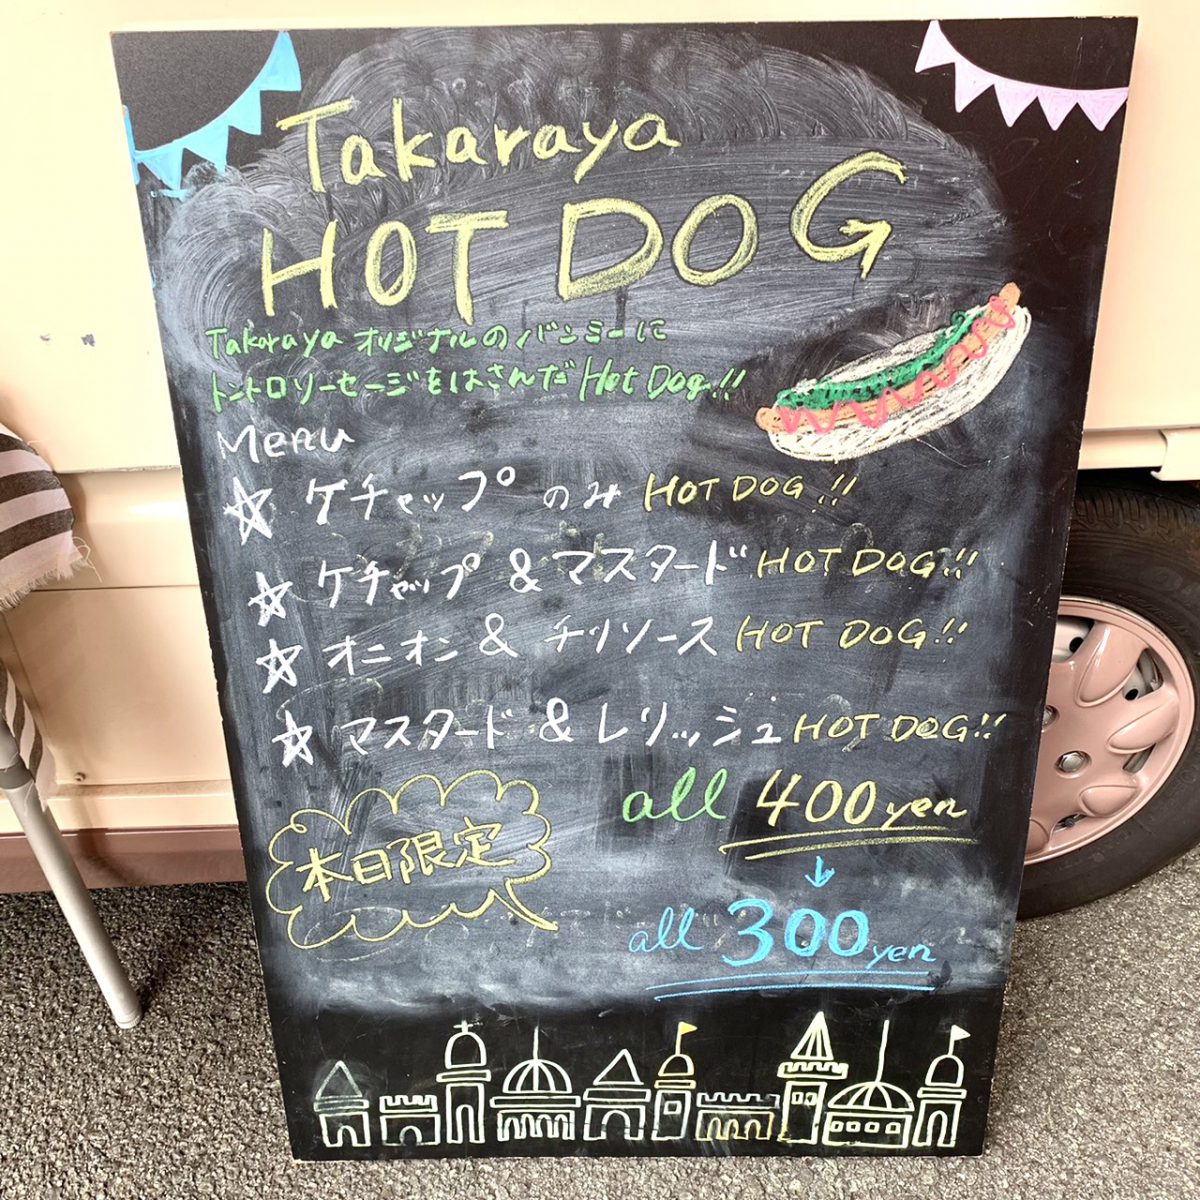 Takaraya
HOT DOG
Takaraya オリジナルのバンミーに
トントロソーセージをはさんだ Hot Dog!!
Menu
☆ ケチャップ のみ HOT DOG!!
☆ ケチャップ & マスタード HOT DOG!!
☆ オニオン & チリソース HOT DOG!!
☆ マスタード & レリッシュ HOT DOG!!
all 400yen
↓
本日限定
all 300yen